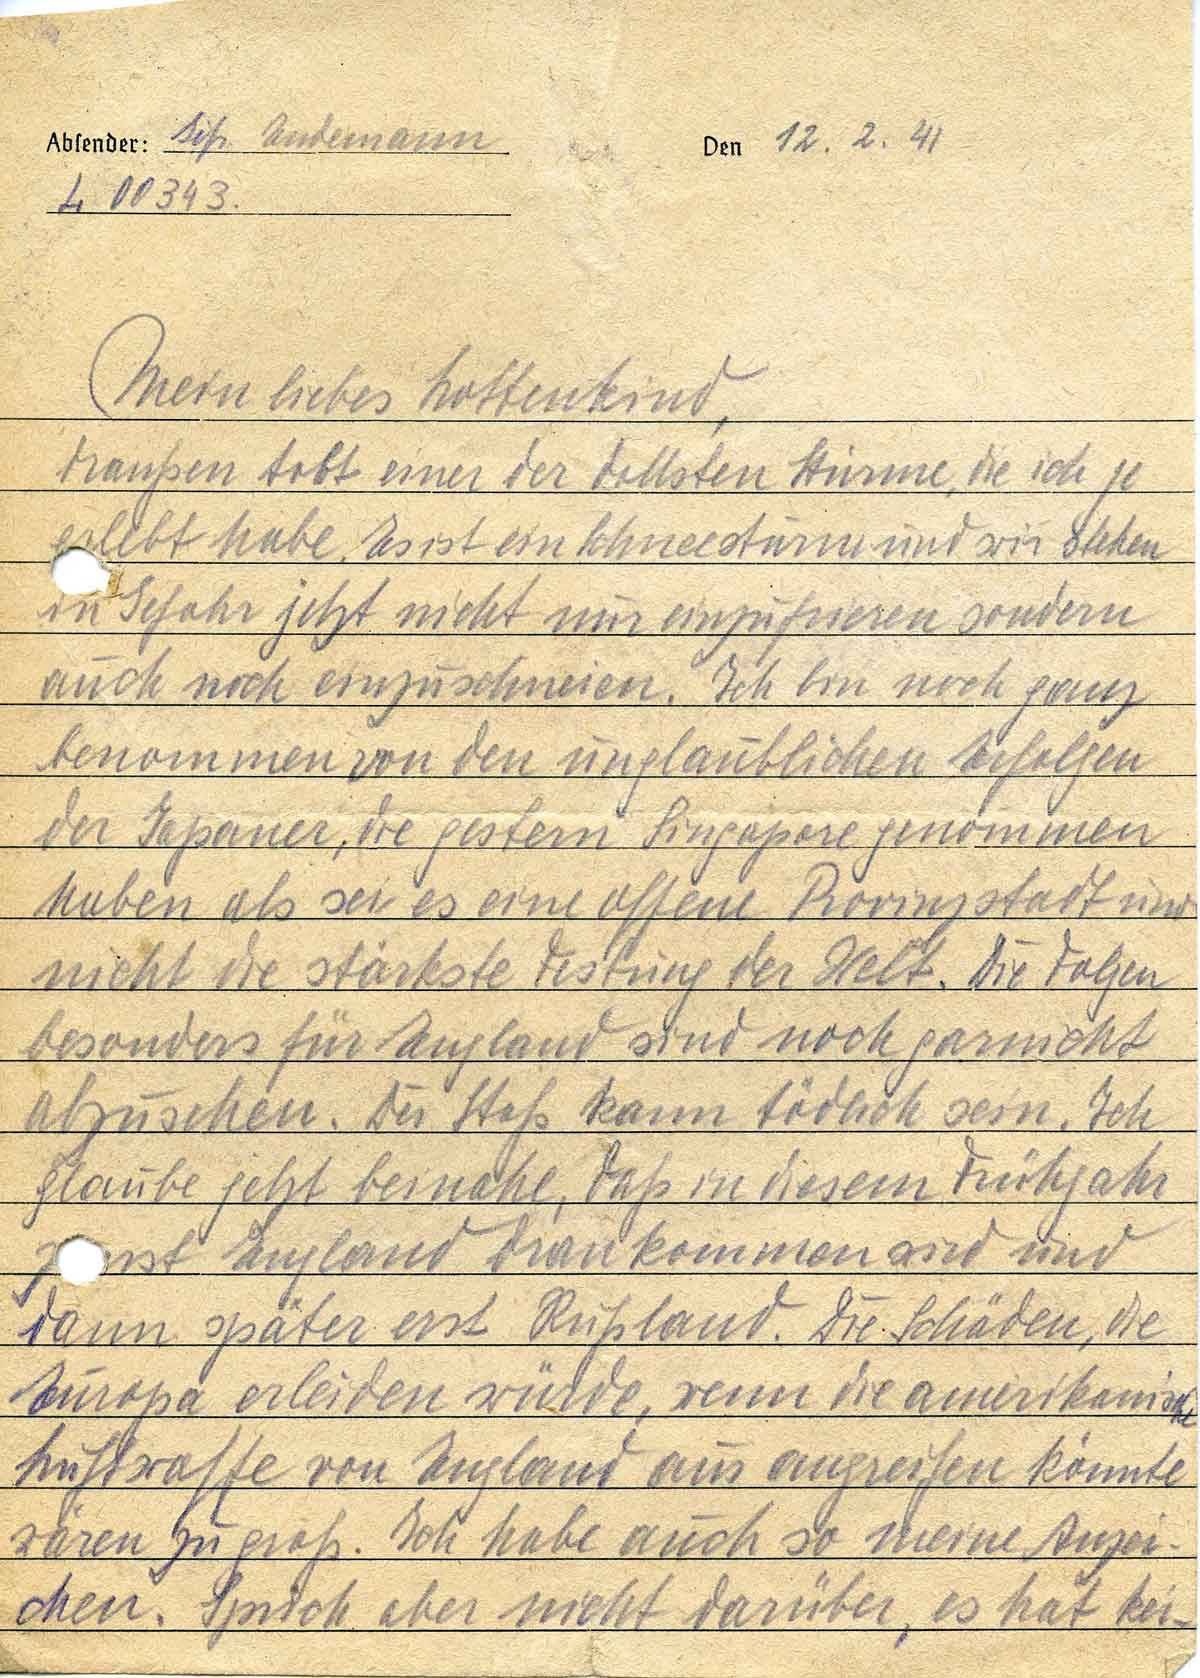 Absender: Uffz. Andemann
Den 12. 2. 41
L 00343.
Mein liebes Lottenkind,
draußen tobt einer der dollsten Stürme, die ich je
erlebt habe. Es ist ein Schneesturm und wir stehen
in Gefahr jetzt nicht nur einzufrieren sondern
auch noch einzuschneien. Ich bin noch ganz
benommen von den unglaublichen Erfolgen
der Japaner, die gestern Singapore genommen
haben als sei es eine offene Provinzstadt und
nicht die stärkste Festung der Welt. Die Folgen
besonders für England sind noch garnicht
abzusehen. Der Stoß kann tödlich sein. Ich
glaube jetzt beinahe, daß in diesem Frühjahr
zuerst England drankommen wird und
dann später erst Rußland. Die Schäden, die
Europa erleiden würde, wenn die amerikanische
Luftwaffe von England aus angreifen könnte
wären zu groß. Ich habe auch so meine Anzei-
chen. Sprich aber nicht darüber, es hat kei-